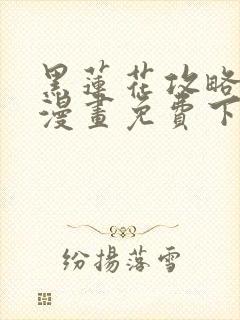 黑蓮花攻略
漫畫免費下
紛揚落雪